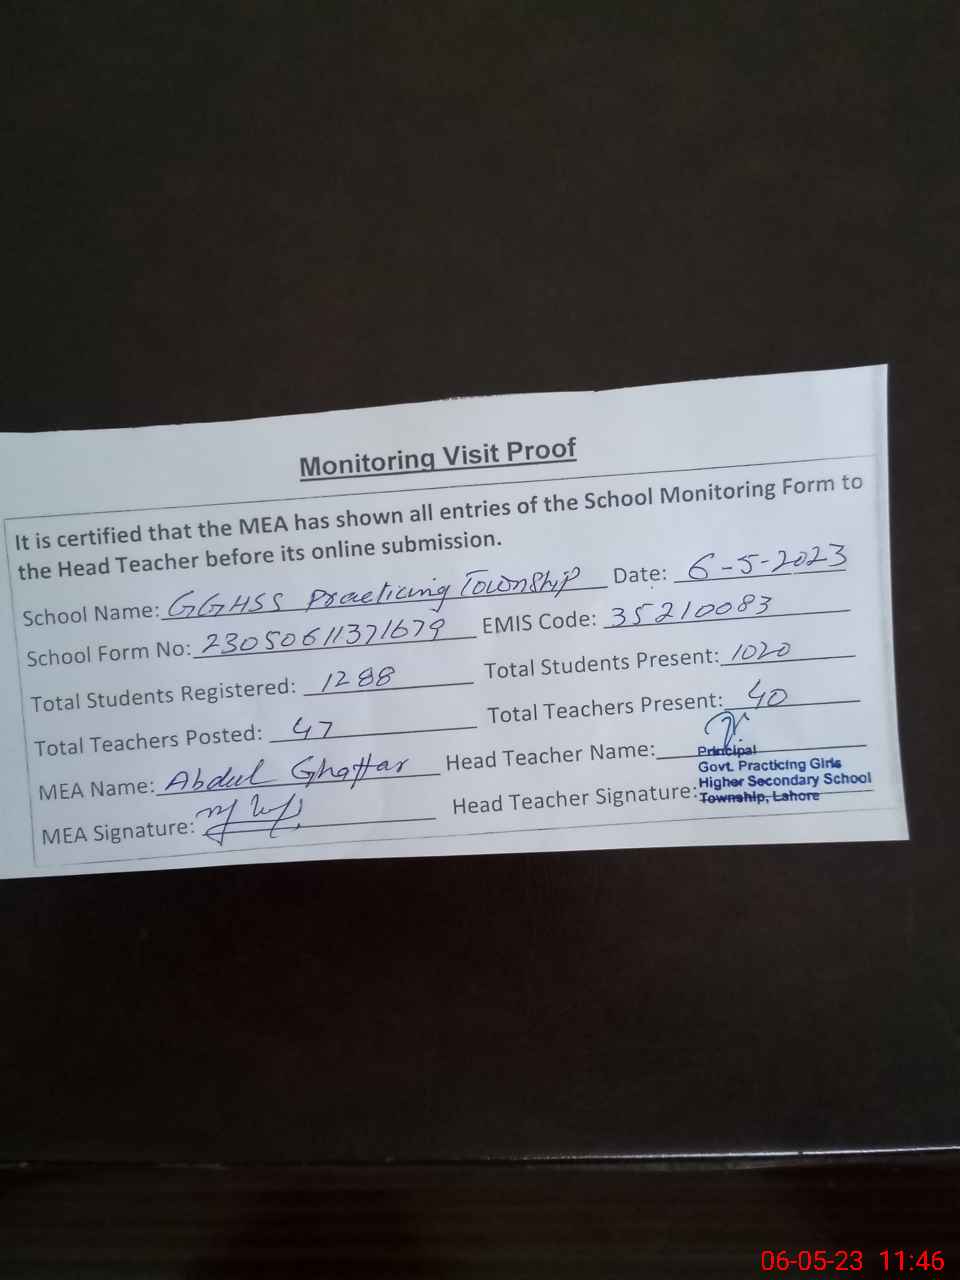 Monitoring Visit Proof
It is certified that the MEA has shown all entries of the School Monitoring Form to
the Head Teacher before its online submission.
School Name: GGHSS Practicing Township Date: 6-5-2023
School Form No: 23050611371679 EMIS Code: 35210083
Total Students Registered: 1288 Total Students Present: 1020
Total Teachers Posted: 47 Total Teachers Present: 40
MEA Name: Abdul Ghaffar Head Teacher Name:
MEA Signature: Head Teacher Signature:
Principal
Govt. Practicing Girls
Higher Secondary School
Township, Lahore
06-05-23 11:46